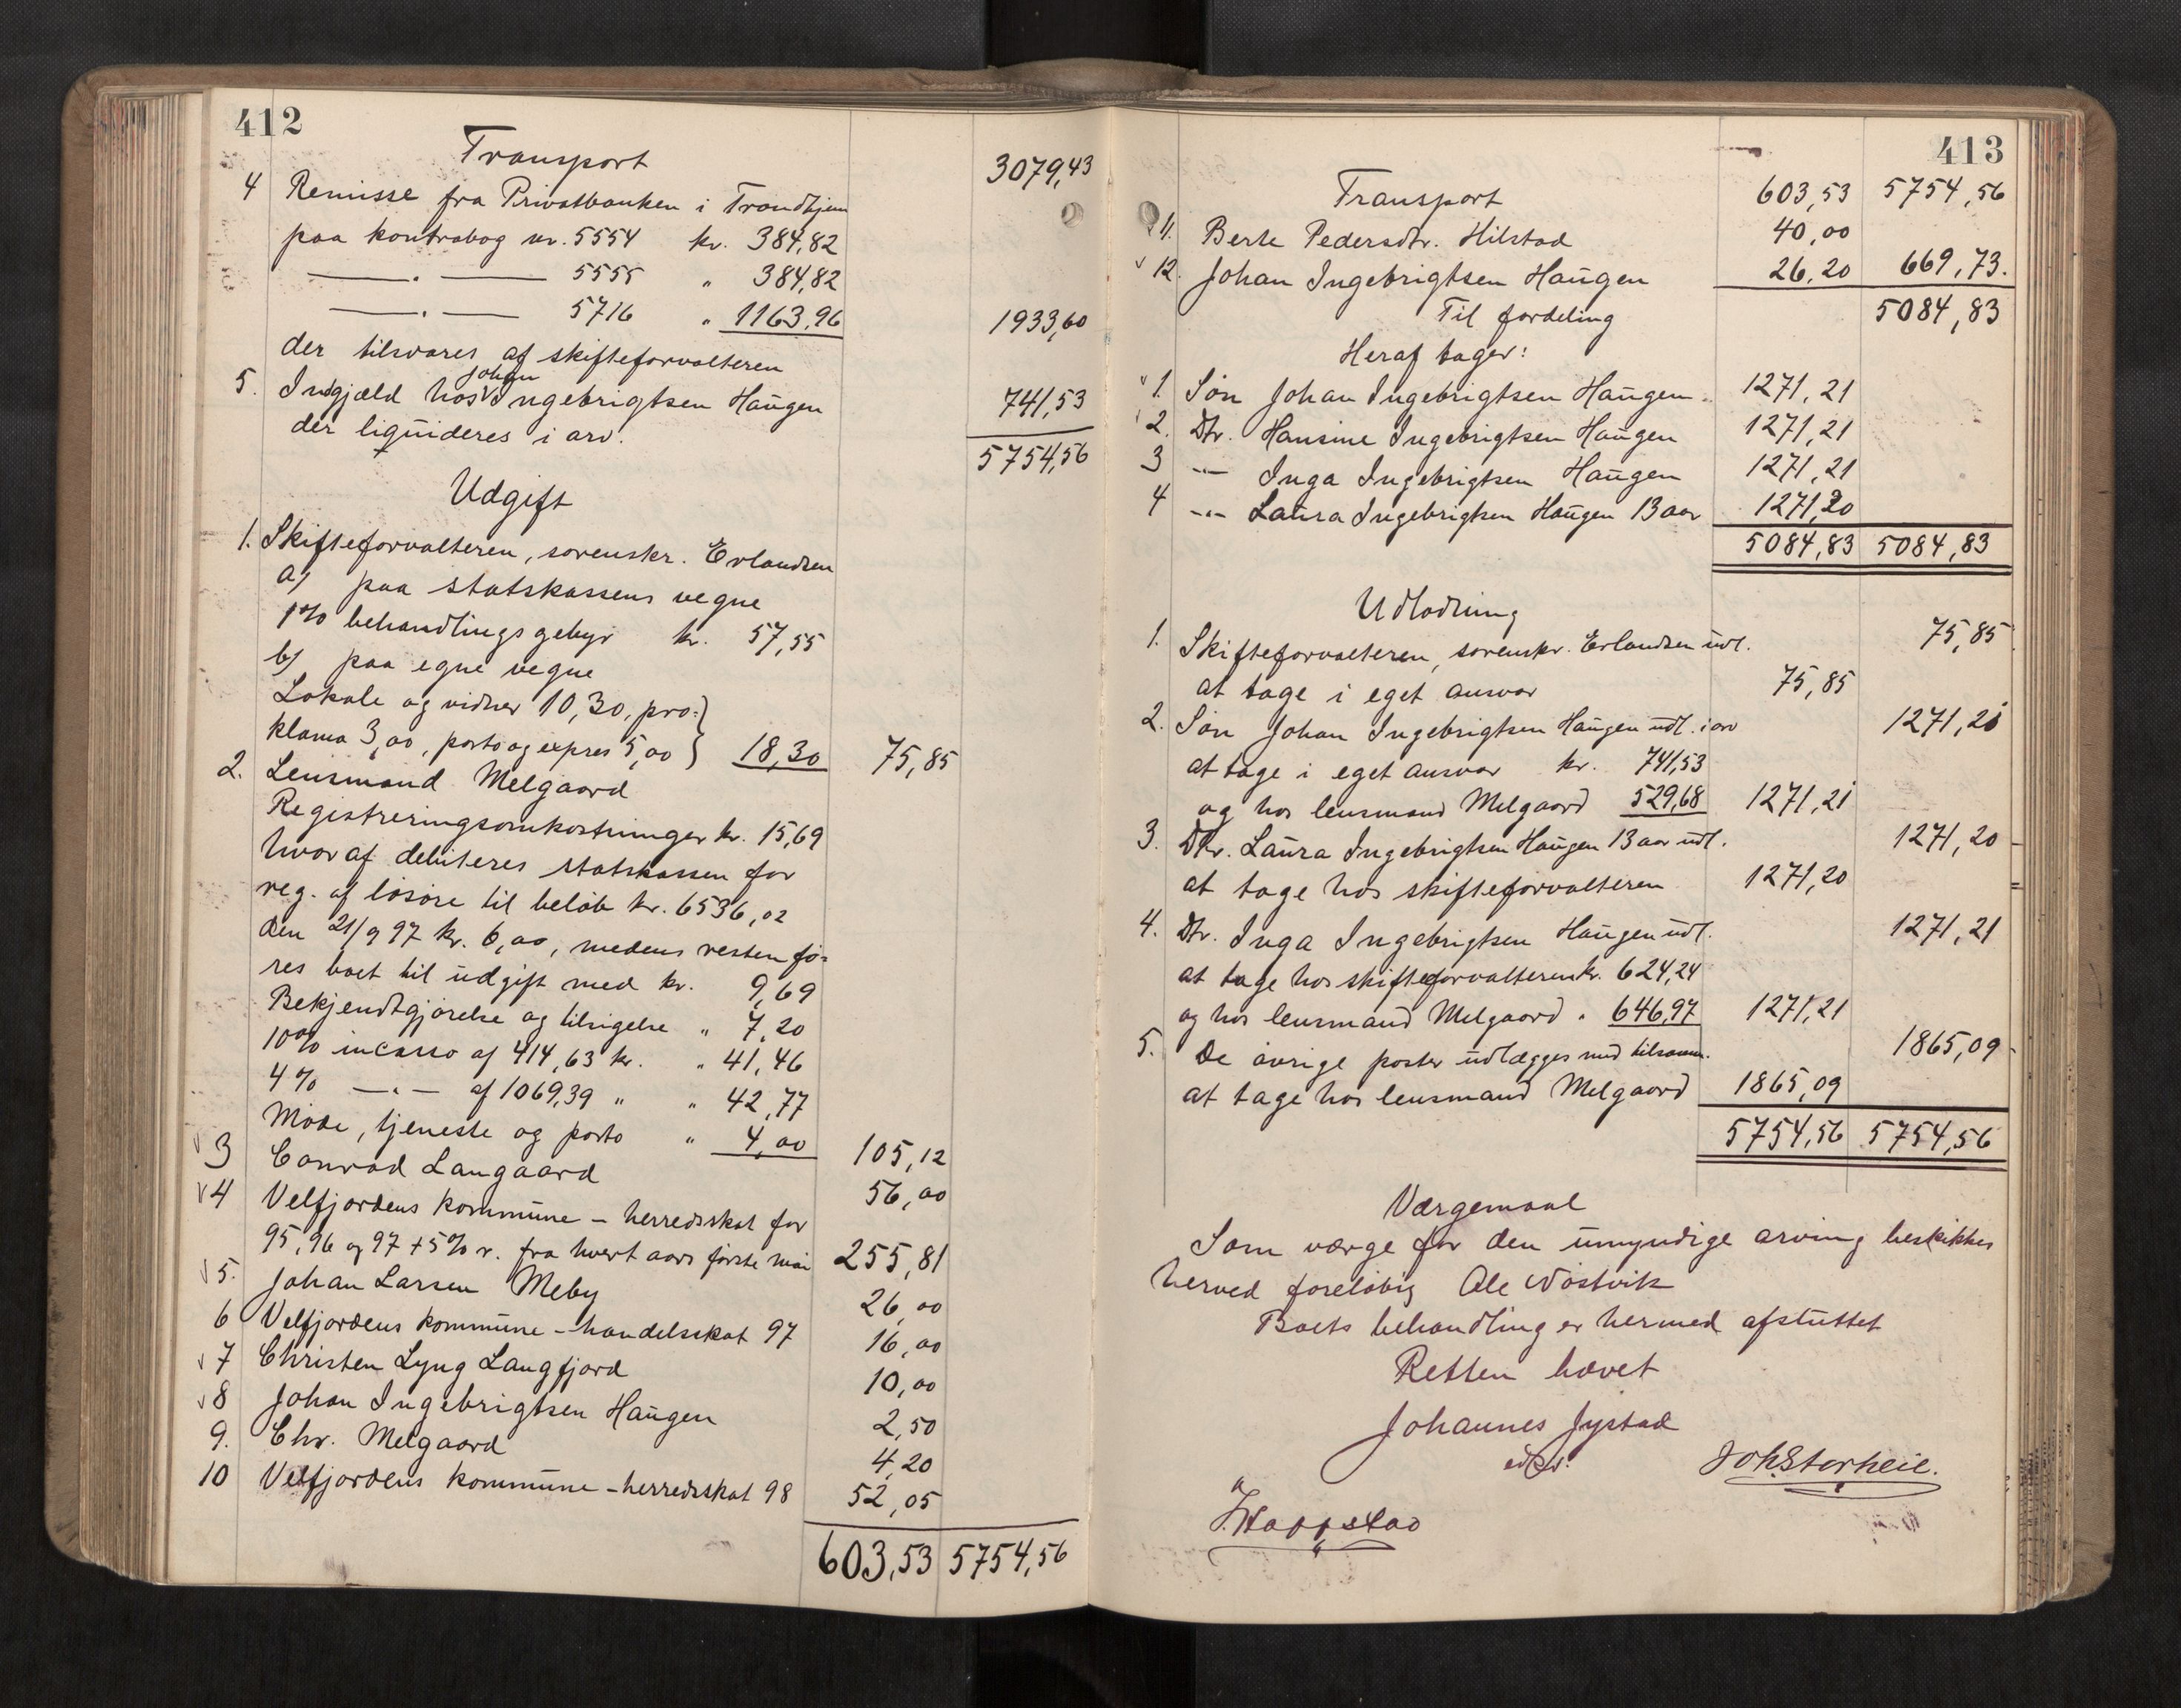 412
Transport 3079,43
4 Remisse fra Privatbanken i Trondhjem
paa kontrabog nr. 5554 kr. 384,82
—„— 5555 " 384,82
—„— 5716 " 1163,96 1933,60
der tilsvares af skifteforvalteren
5. Indgjæld hos Johan Ingebrigtsen Haugen 741,53
der liquideres i arv.
5754,56
Udgift
1. Skifteforvalteren, sorenskr. Erlandsen
a) paa statskassens vegne
1% behandlingsgebyr kr. 57,55
b) paa egne vegne
Lokale og vidner 10,30, pro-
klama 3,00, porto og expres 5,00 } 18,30 75,85
2. Lensmand Melgaard
Registreringsomkostninger kr. 15,69
hvoraf debiteres statskassen for
reg. af løsøre til beløb kr. 6536,02
den 21/9 97 kr. 6,00, medens resten fø-
res boet til udgift med kr. 9,69
Bekjendtgjørelse og tilsigelse " 7,20
10% incasso af 414,63 kr. " 41,46
4% —„— af 1069,39 " " 42,77
Møde, tjeneste og porto " 4,00 105,12
3 Conrad Langaard 56,00
4 Velfjordens kommune - herredsskat for
95, 96 og 97 + 5% r. fra hvert aars første mai 255,81
5. Johan Larsen Meby 26,00
6 Velfjordens kommune - handelsskat 97 16,00
7 Christen Lyng Langfjord 10,00
8 Johan Ingebrigtsen Haugen 2,50
9. Chr. Melgaard 4,20
10 Velfjordens kommune - herredsskat 98 52,05
603,53 5754,56
413
Transport 603,53 5754,56
11. Berte Pedersdtr. Hilstad 40,00
12. Johan Ingebrigtsen Haugen 26,20 669,73.
Til fordeling 5084,83
Heraf tager:
1. Søn Johan Ingebrigtsen Haugen. 1271,21
2. Dtr. Hansine Ingebrigtsen Haugen 1271,21
3 -"- Inga Ingebrigtsen Haugen 1271,21
4 -"- Laura Ingebrigtsen Haugen 13 aar 1271,20
5084,83 5084,83
Udlodning
1. Skifteforvalteren, sorenskr. Erlandsen udl. 75,85
at tage i eget ansvar 75,85
2. Søn Johan Ingebrigtsen Haugen udl. i arv 1271,21
at tage i eget ansvar kr. 741,53
og hos lensmand Melgaard 529,68 1271,21
3. Dtr. Laura Ingebrigtsen Haugen 13 aar udl. 1271,20
at tage hos skifteforvalteren 1271,20
4. Dtr. Inga Ingebrigtsen Haugen udl. 1271,21
at tage hos skifteforvalteren kr. 624,24
og hos lensmand Melgaard " 646,97 1271,21
5. De øvrige poster udlægges med tilsamm. 1865,09
at tage hos lensmand Melgaard 1865,09
5754,56 5754,56
Værgemaal
Som værge for den umyndige arving beskikkes
herved foreløbig Ole Nøstvik
Boets behandling er hermed afsluttet
Retten hævet
Johannes Jystad
edsv. Joh. Storheil.